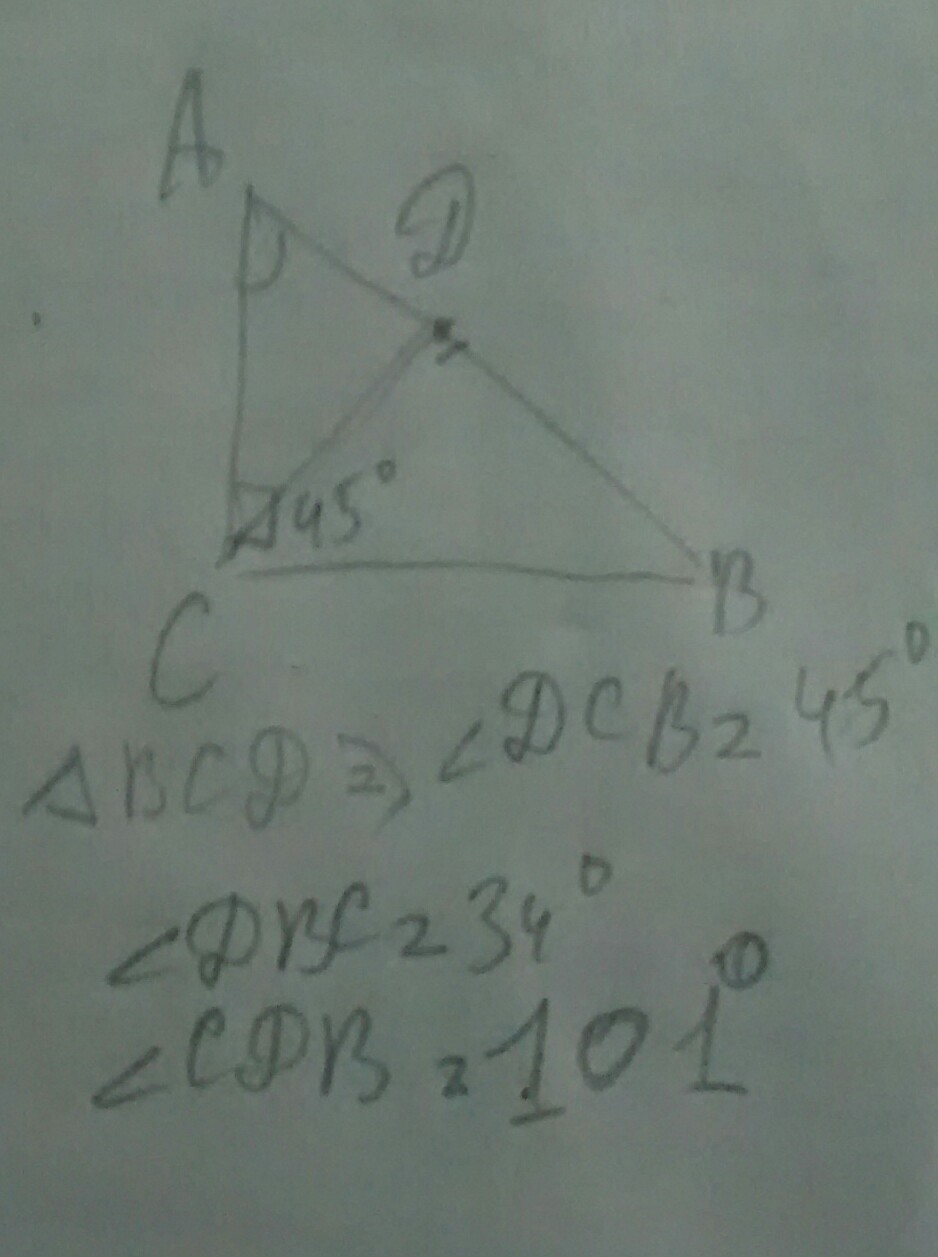 A
D
45°
C
B
△BCD ⇒ ∠DCB = 45°
∠DBC = 34°
∠CDB = 101°